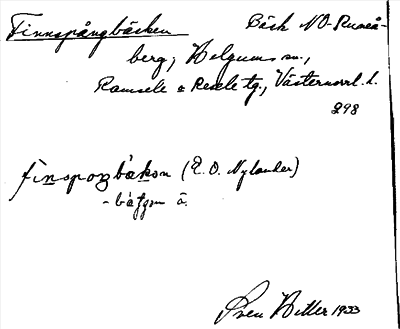 Finnspångbäcken Bäck NO Runeå-
berg, Helgums sn.,
Ramsele o Resele tg., Västernorrl. l.
298
finspoŋbäkən (E. O. Nylander)
Sven Hitter 1933